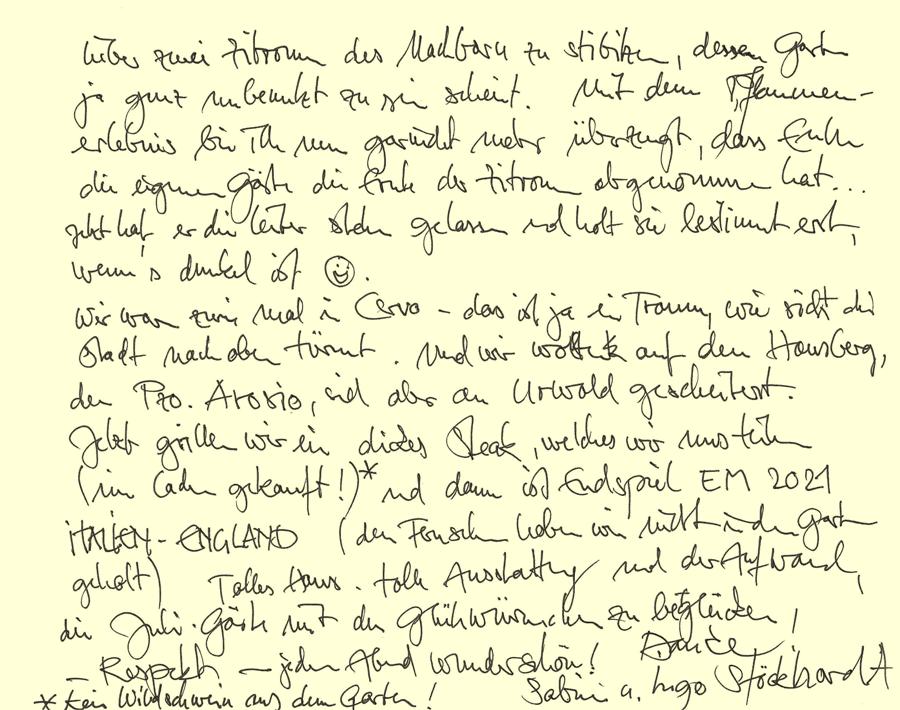 lieber zwei Zitronen des Nachbarn zu stibitzen, dessen Garten
ja ganz unbenutzt zu sein scheint. Mit dem Pflaumen-
erlebnis bin ich nun garnicht mehr überzeugt, dass Euch
die eigenen Gäste die Ernte der Zitronen abgenommen hat...
Jetzt hat er die Leiter stehen gelassen und holt sie bestimmt erst,
wenn's dunkel ist ☺.
Wir waren zwei mal in Cervo – das ist ja ein Traum, wie sich die
Stadt nach oben türmt. Und wir wollten auf den Hausberg,
den Pzo. Arosio, sind aber am Urwald gescheitert.
Jetzt grillen wir ein dickes Steak, welches wir uns teilen
(im Laden gekauft!)* und dann ist Endspiel EM 2021
ITALIEN - ENGLAND (den Fernseher haben wir nicht in den Garten
geholt) Tolles Haus. tolle Ausstattung und der Aufwand,
die Juli-Gäste mit den Glühwürmchen zu beglücken,
– Respekt – jeden Abend wunderschön! Danke
* Kein Wildschwein aus dem Garten! Sabine u. Ingo Stöckhardt